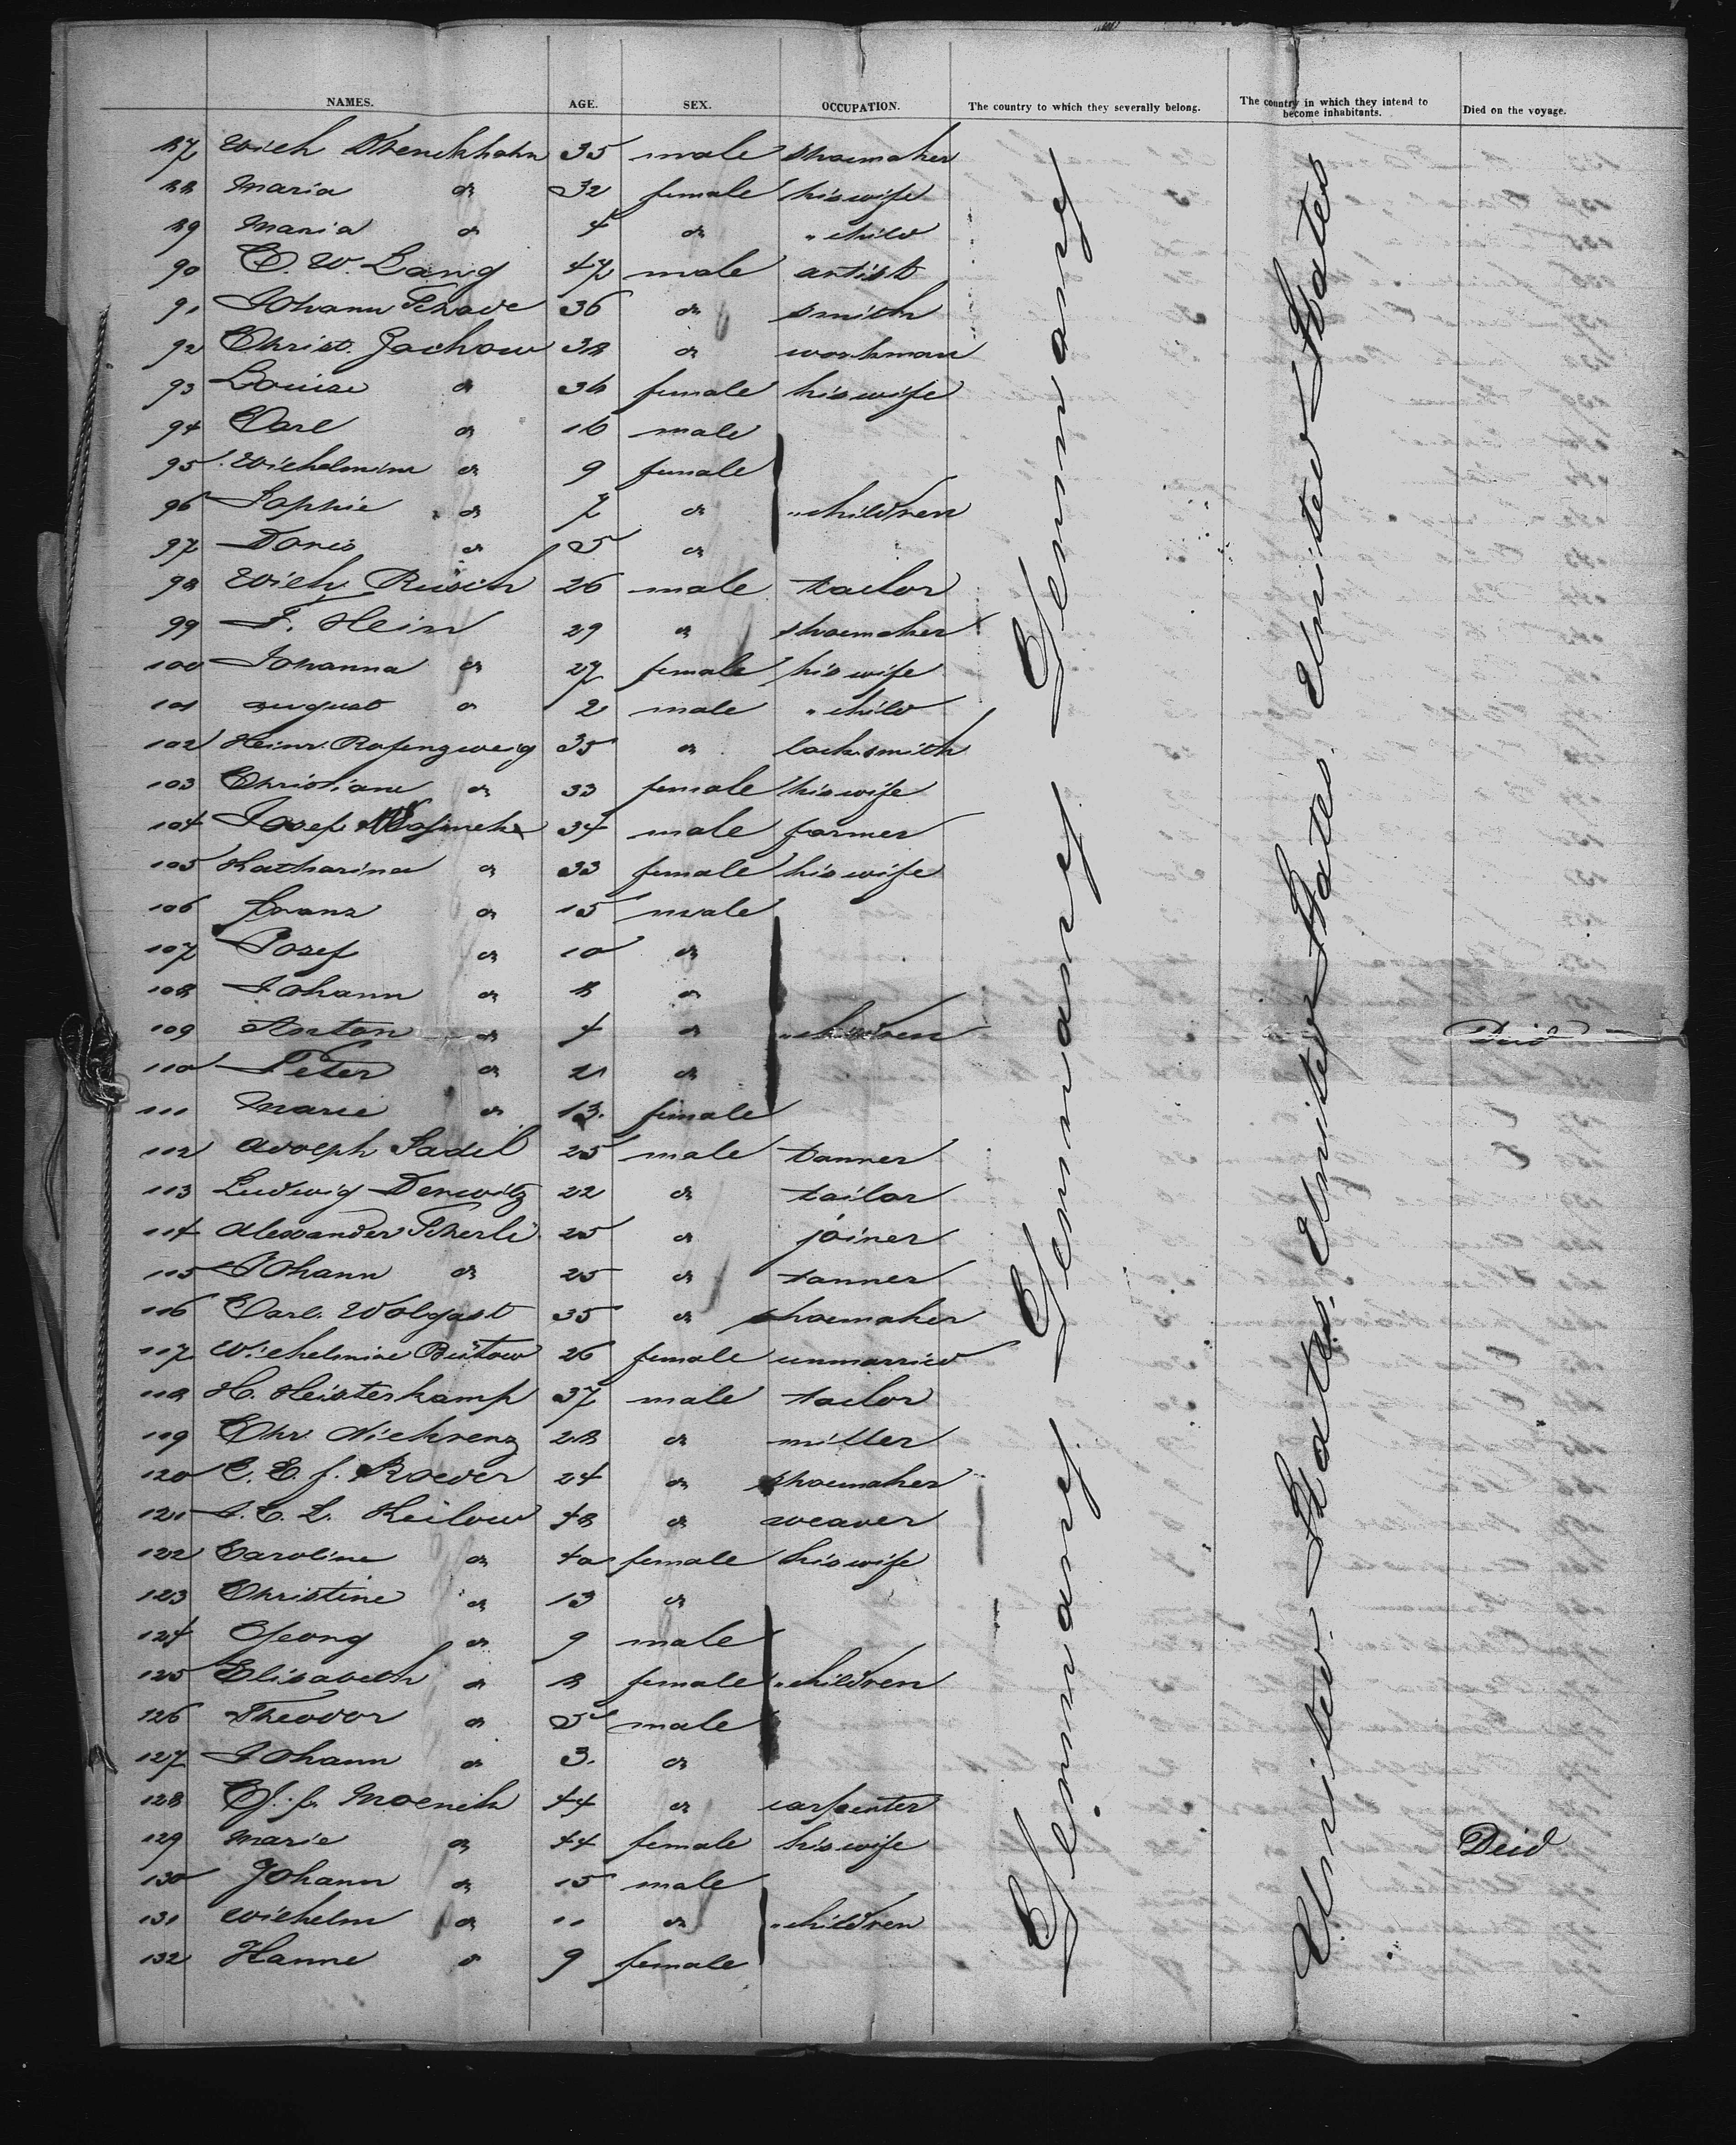 NAMES. AGE. SEX. OCCUPATION. The country to which they severally belong. The country in which they intend to become inhabitants. Died on the voyage.
87 Wilh 35 male shoemaker
88 Maria do 32 female his wife
89 Maria do 4 do " child
90 C. W. Lang 47 male artist
91 Johann Schade 36 do smith
92 Christ. Jachow 38 do workman
93 Louise do 36 female his wife
94 Carl do 16 male
95 Wilhelmine do 9 female
96 Sophie do 7 do " children
97 Doris do 5 do
98 Wilh. Rüsch 26 male tailor
99 F. Hein 29 do shoemaker
100 Johanna do 27 female his wife
101 August do 2 male " child
102 Heinr. Rosenzweig 35 do locksmith
103 Christiane do 33 female his wife
104 Josef 34 male farmer
105 Katharina do 33 female his wife
106 Franz do 15 male
107 Josef do 10 do
108 Johann do 8 do
109 Anton do 4 do " children Deid
110 Peter do 2 do
111 Marie do 13. female
112 Adolph Sadel 25 male tanner
113 Ludwig Derwitz 22 do tailor
114 Alexander Scherli 25 do joiner
115 Johann do 25 do tanner
116 Carl Wolgast 35 do shoemaker
117 Wilhelmine Bütow 26 female unmarried
118 H. Heisterkamp 37 male tailor
119 Chr. Niehrenz 28 do miller
120 C. E. F. Roeder 24 do shoemaker
121 J. C. L. Keilow 48 do weaver
122 Caroline do 40 female his wife
123 Christine do 13 do
124 Georg do 9 male
125 Elisabeth do 8 female " children
126 Theodor do 5 male
127 Johann do 3. do
128 G. F. Moench 44 do carpenter
129 Marie do 44 female his wife Deid
130 Johann do 15 male
131 Wilhelm do 11 do " children
132 Hanne do 9 female
Germany. Germany. Germany Germany
United States. United States. United States